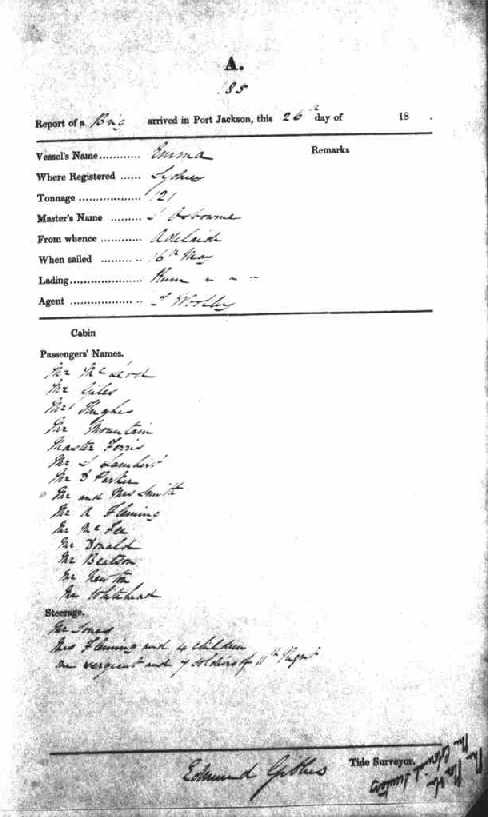 A.
185
Report of a Brig arrived in Port Jackson, this 26th day of 18 .
Vessel's Name ............ Emma Remarks
Where Registered ...... Sydney
Tonnage .................. 121
Master's Name ......... Osbourne
From whence ............ Adelaide
When sailed ............ 16th May
Lading ......................
Agent ......................
Cabin
Passengers' Names.
Mr McLeod
Mr Giles
Mrs Hughes
Mr Mountain
Master Forris
Mr S Lambert
Mr D Parker
Mr and Mrs Smith
Mr A Fleming
Mr McFee
Mr Donald
Mr Beatson
Mr Newton
Mr Whitehead
Steerage.
Mr Jones
Mrs Fleming and 4 children
one sergeant and 7 soldiers of 11th Regt
Tide Surveyor.
Edmund Gibbes